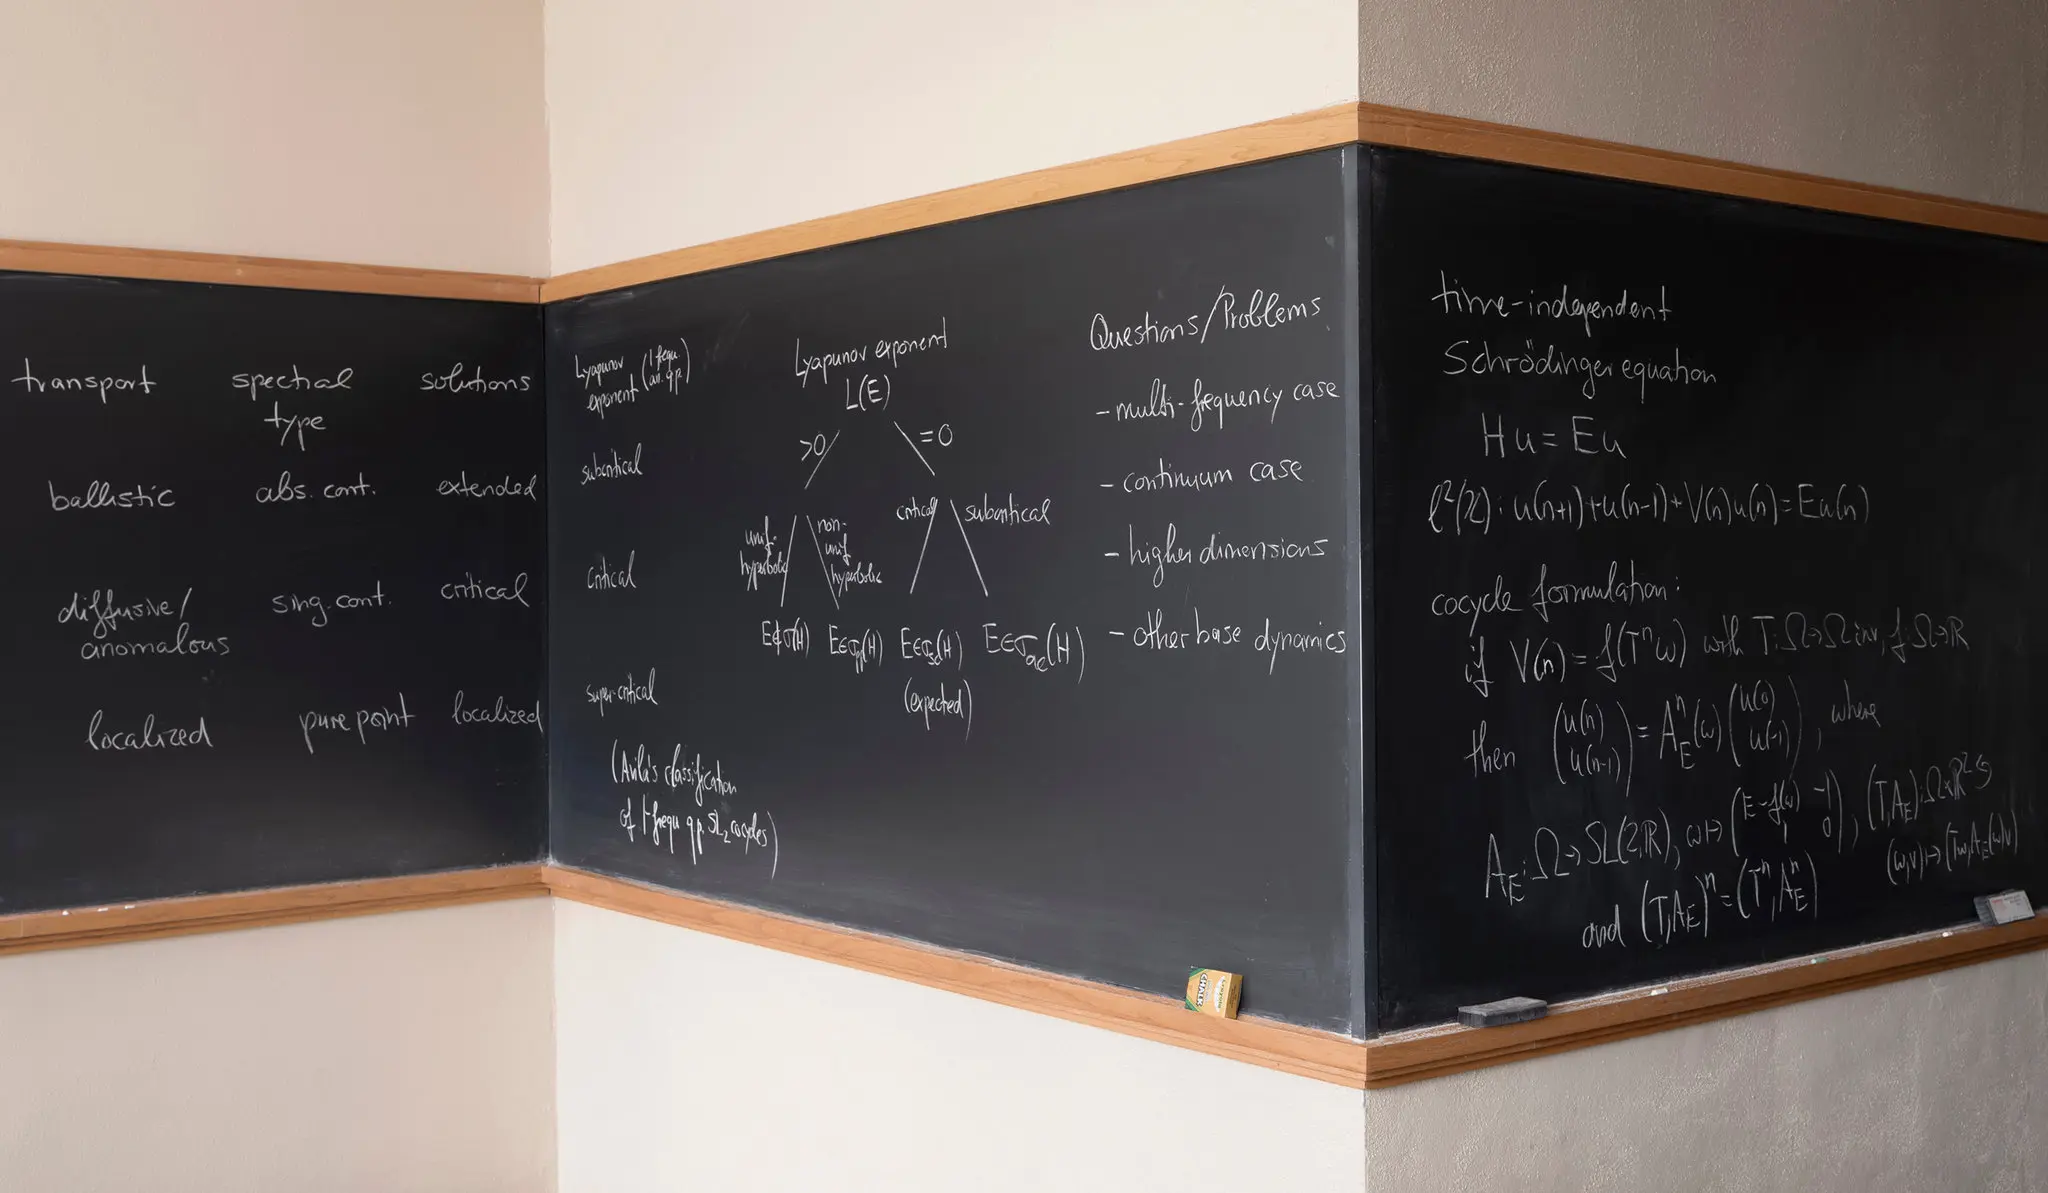 transport spectral type solutions
ballistic abs. cont. extended
diffusive/anomalous sing. cont. critical
localized pure point localized
Lyapunov exponent (1 frequ. an. q.p.)
subcritical
critical
super-critical
(Avila's classification
of 1-frequ q.p. SL₂ cocycles)
Lyapunov exponent
L(E)
>0 =0
unif. hyperbolic non-unif hyperbolic critical subcritical
E∉σ(H) E∈σpp(H) E∈σsc(H) E∈σac(H)
(expected)
Questions/Problems
- multi-frequency case
- continuum case
- higher dimensions
- other base dynamics
CHALK
time-independent
Schrödinger equation
Hu = Eu
ℓ²(ℤ): u(n+1)+u(n-1)+V(n)u(n)=Eu(n)
cocycle formulation:
if V(n) = f(Tⁿω) with T:Ω→Ω inv, f:Ω→ℝ
then (u(n) u(n-1)) = Aⁿ_E(ω) (u(0) u(-1)), where
A_E: Ω→SL(2,ℝ), ω↦ (E-f(ω) -1 1 0), (T,A_E): Ω×ℝ²↺
(ω,v)↦(Tω,A_E(ω)v)
and (T,A_E)ⁿ = (Tⁿ,Aⁿ_E)